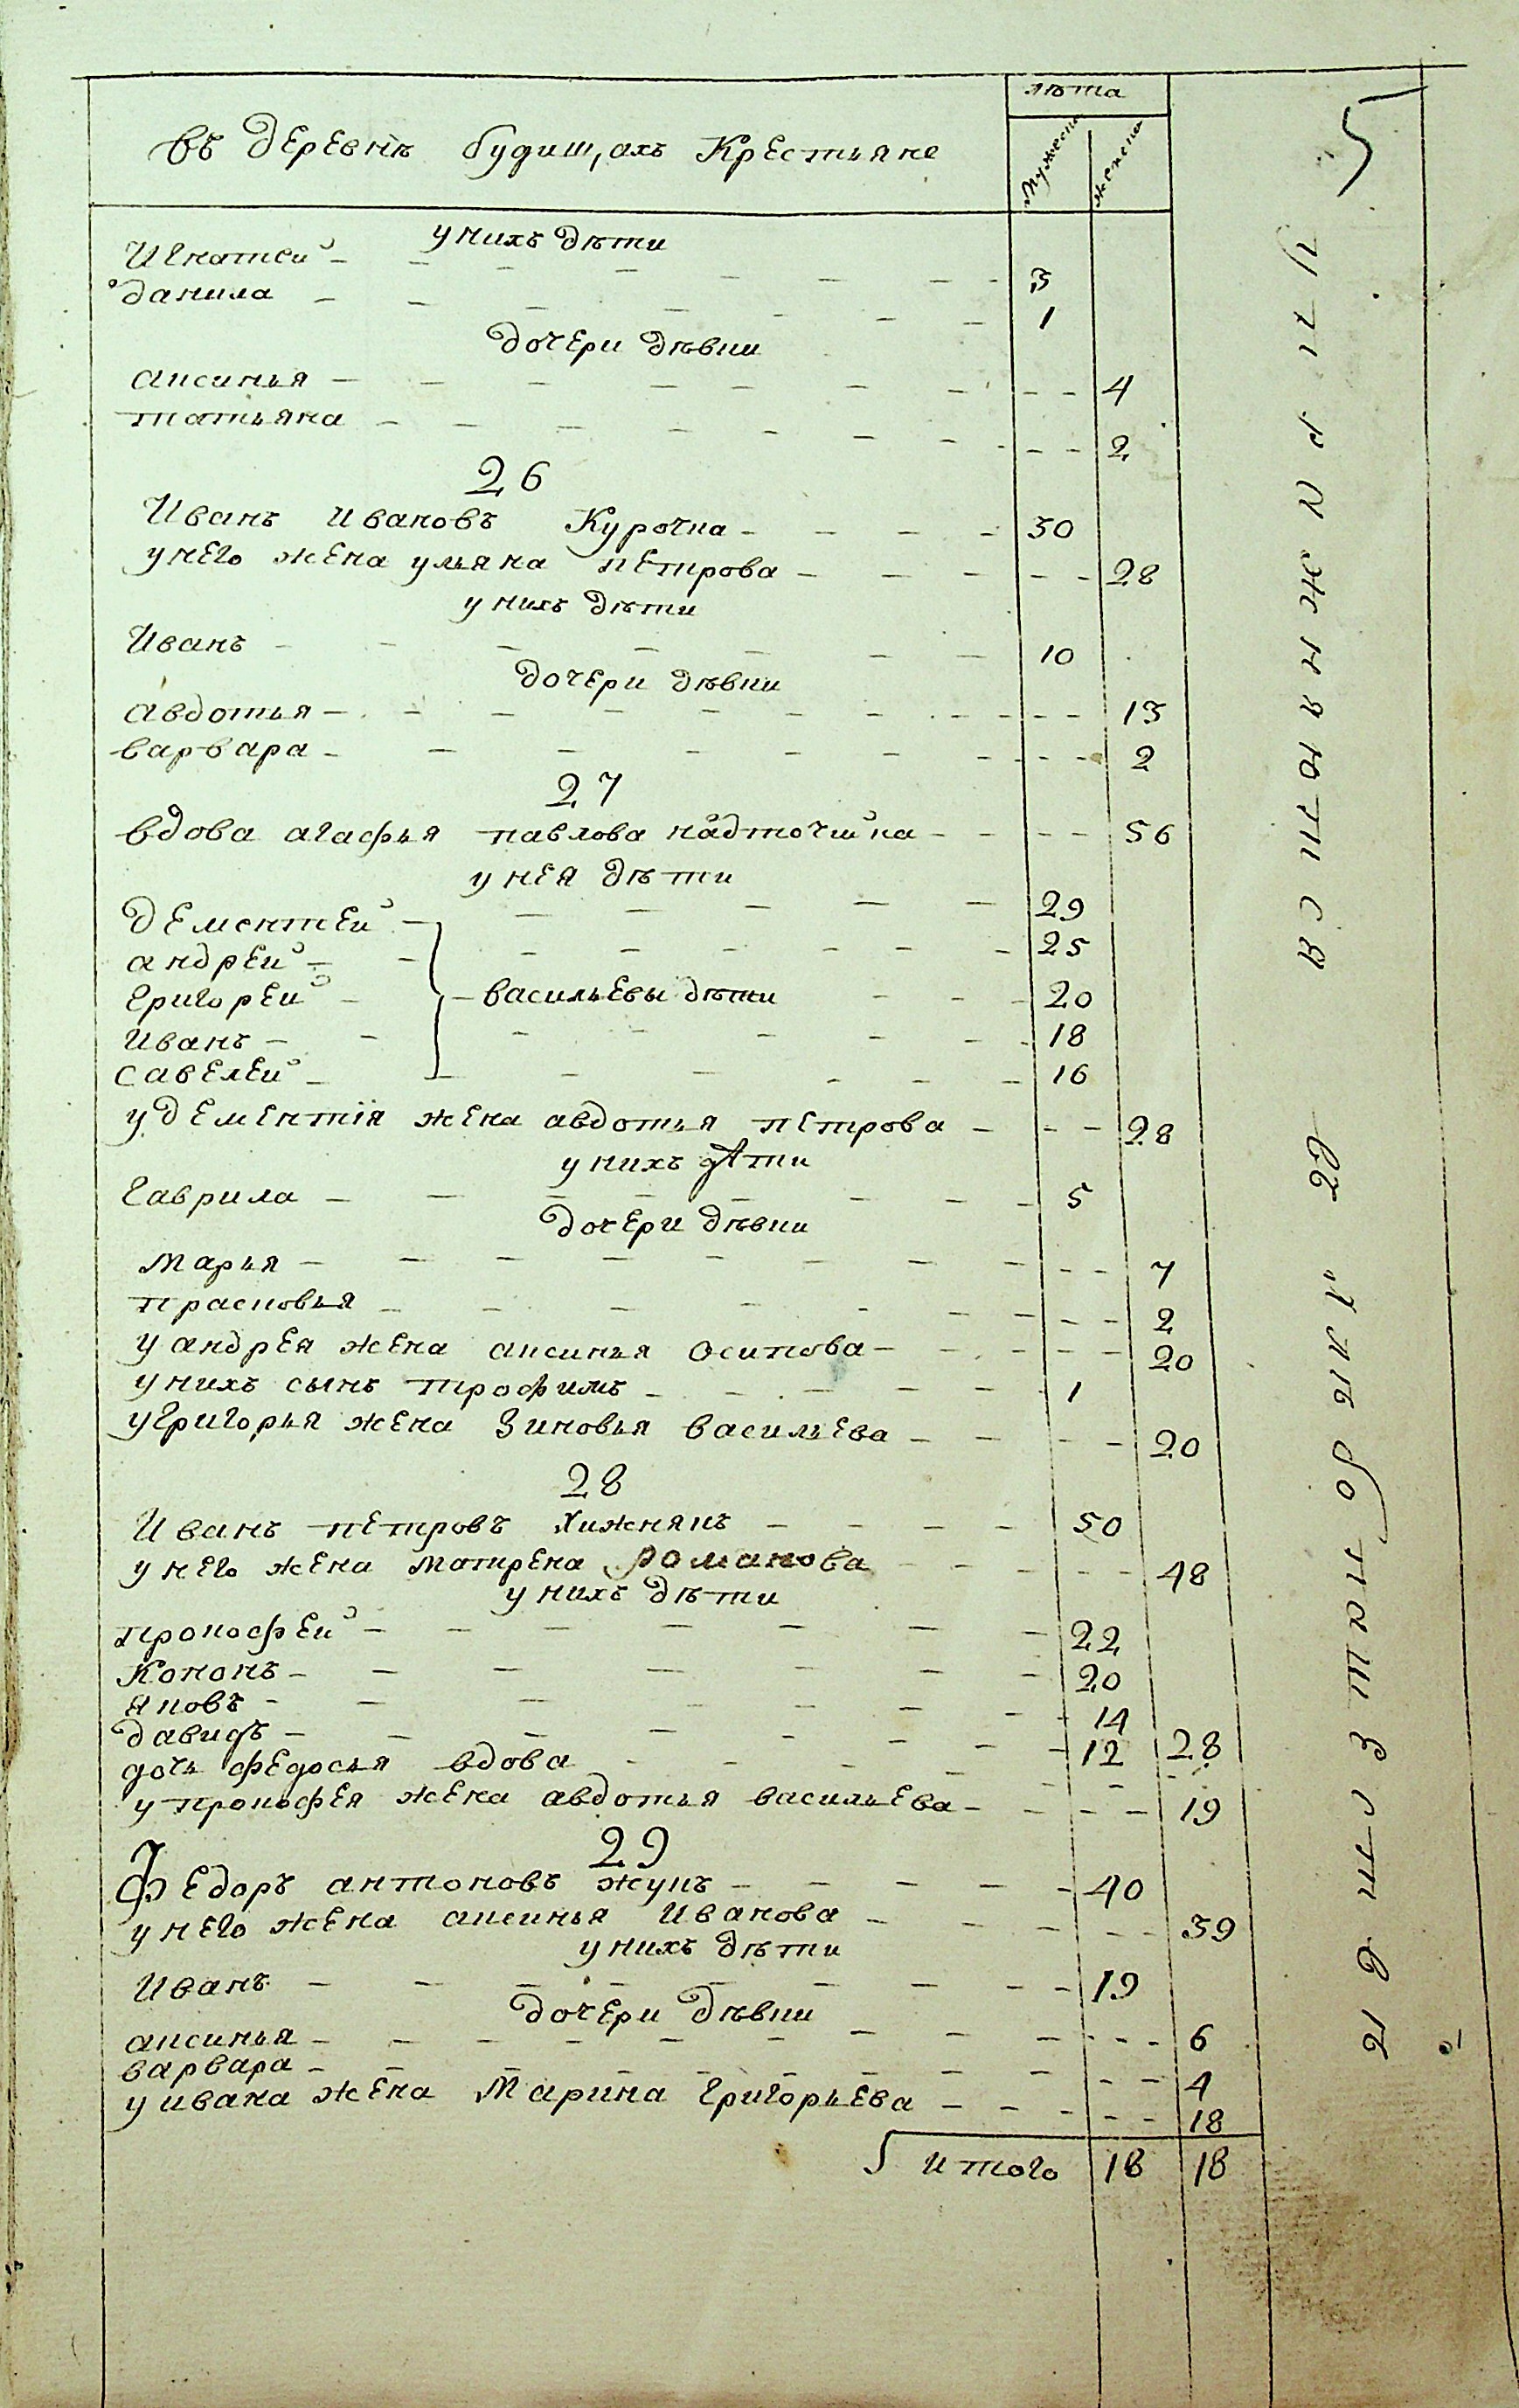 лѣта
въ деревнѣ будищахъ Крестьяне
мужеска
женска
5
у нихъ дѣти
Игнатей 3
данила 1
дочери дѣвки
аксинья 4
татьяна 2
26
Иванъ Ивановъ Курочка 30
у него жена ульяна петрова 28
у нихъ дѣти
Иванъ 10
дочери дѣвки
авдотья 13
варвара 2
27
вдова агафья павлова надточийка 56
у нея дѣти
дементей 29
андрей 25
григорей васильевы дѣти 20
иванъ 18
савелей 16
у дементія жена авдотья петрова 28
у нихъ дѣти
гаврила 5
дочери дѣвки
марья 7
прасковья 2
у андрея жена аксинья осипова 20
у нихъ сынъ трофимъ 1
у григорья жена зиновья васильева 20
28
Иванъ петровъ хижнякъ 50
у него жена матрена романова 48
у нихъ дѣти
прокофей 22
кононъ 20
яковъ 14
давидъ 12
дочь федосья вдова 28
у прокофея жена авдотья васильева 19
29
Федоръ антоновъ жукъ 40
у него жена аксинья Иванова 39
у нихъ дѣти
Иванъ 19
дочери дѣвки
аксинья 6
варвара 4
у ивана жена Марина григорьева 18
итого 18 18